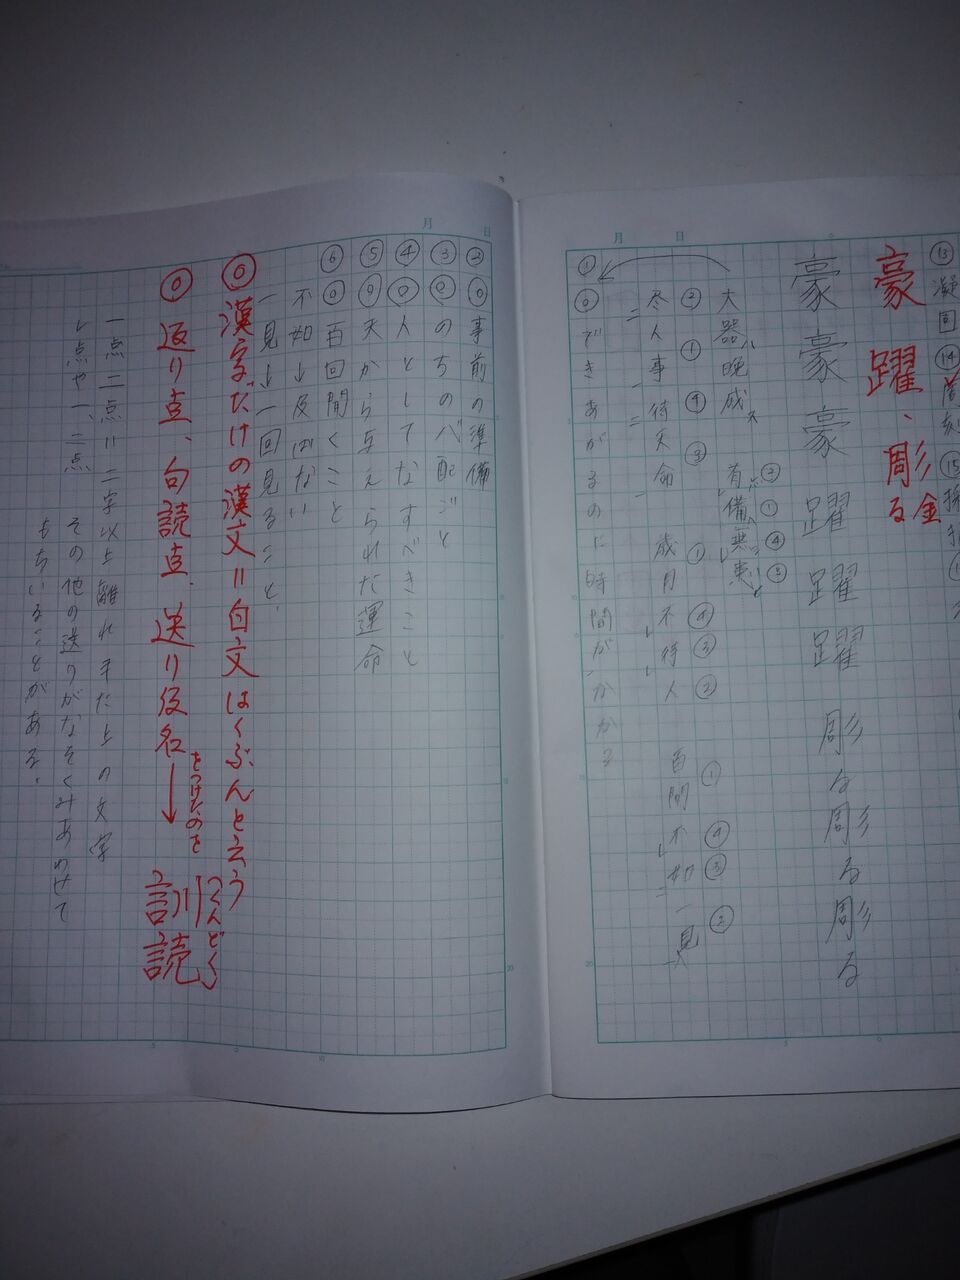 ⑬凝固⑭
豪 躍、彫る
金
豪豪豪躍躍躍彫る彫る彫る
大器晩成 有備無患
③①④③
尽人事待天命 歳月不待人 百聞不如一見
②①④③ ①④③② ①④③②
① ◎できあがるのに時間がかかる
月 日
② ◎事前の準備
③ ◎のちの心配ごと
④ ◎人としてなすべきこと
⑤ ◎天から与えられた運命
⑥ ◎百回聞くこと
不如→及ばない
一見→一回見ること、
◎漢字だけの漢文＝白文はくぶんと云う
◎返り点、句読点、送り仮名をつけたのを→訓読
くんどく
一点二点＝二字以上離れまた上の文字
レ点や一、二点 その他の送りがなをくみあわせて
もちいることがある、
月 日